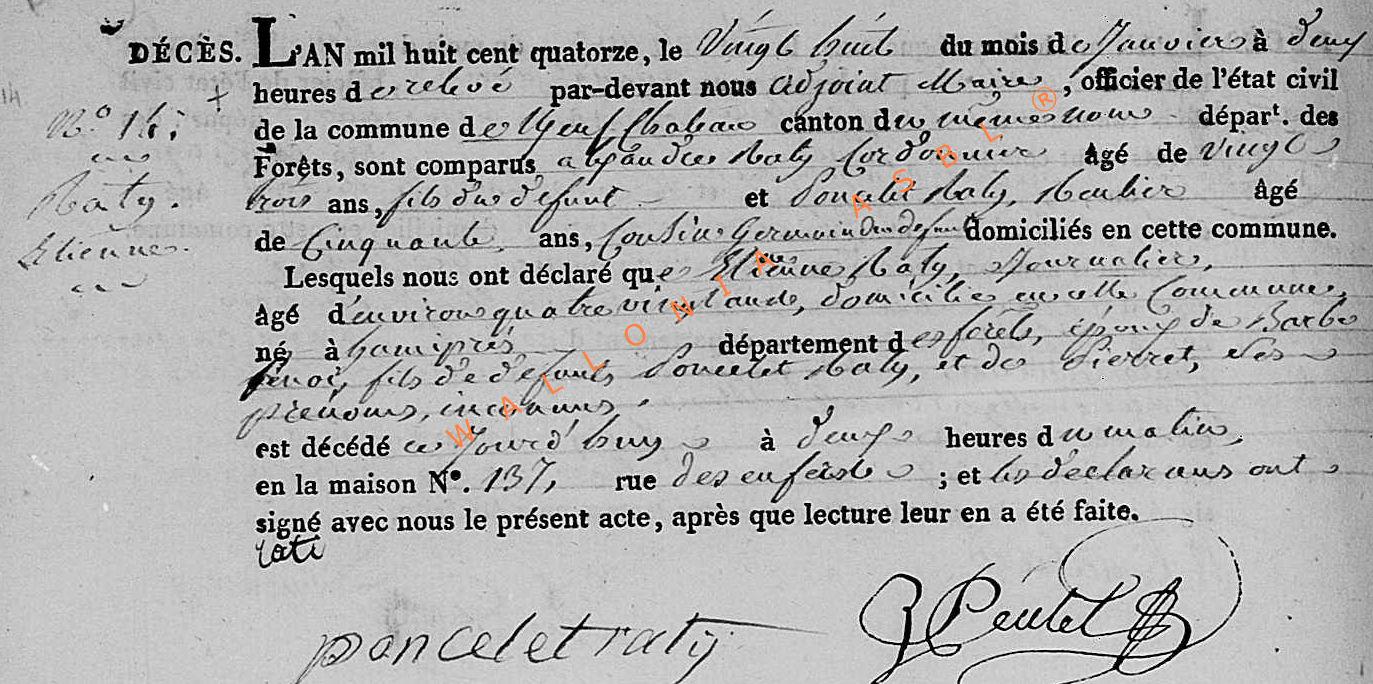 DÉCÈS. L'AN mil huit cent quatorze, le Vingt huit du mois de Janvier à deux
14
heures de relevé par-devant nous adjoint Maire, officier de l'état civil
N.º 14.
de la commune de Neufchateau canton du même nom départ. des
Forêts, sont comparus Raty Cordonnier âgé de vingt
Raty.
trois ans, fils du défunt et Poncelet Raty, âgé
Etienne.
de Cinquante ans, Cousin Germain du défunt domiciliés en cette commune.
Lesquels nous ont déclaré que Etienne Raty, Journalier,
âgé d'environ quatre vingt ans, domicilié en cette Commune,
né à hamipré département des forêts, époux de Barbe
fils de défunt Poncelet Raty, et de Pierret, ses
prénoms inconnus,
est décédé ce Jourd'huy à deux heures du matin,
en la maison Nº. 137, rue ; et les déclarans ont
signé avec nous le présent acte, après que lecture leur en a été faite.
rati
poncelet raty
WALLONIA ASBL ®